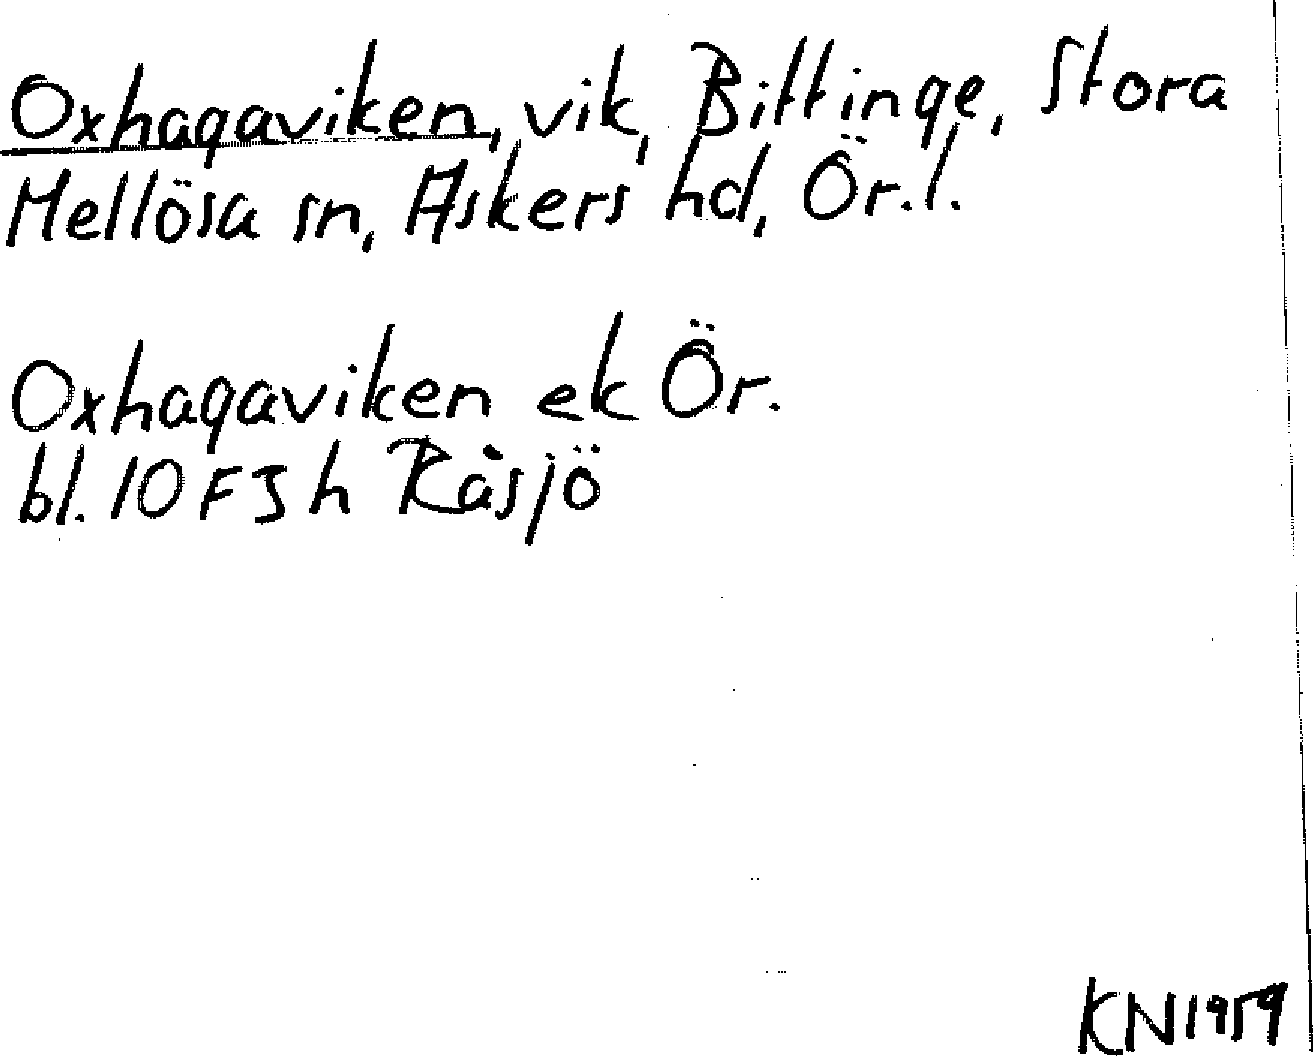 Oxhagaviken, vik, Bittinge, Stora
Mellösa sn, Askers hd, Ör. l.

Oxhagaviken ek Ör.
bl. 10 F 3 h Råsjö

KN 1959